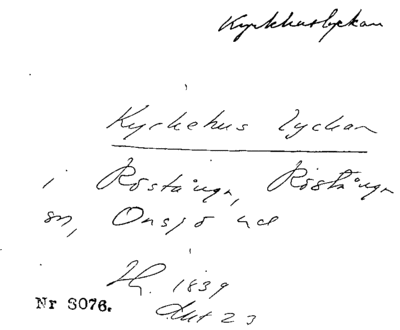 Kyrkhuslyckan
Kyrkehus lyckan
i Röstånga, Röstånga
sn, Onsjö hd
1839
Akt 23
Nr S076.